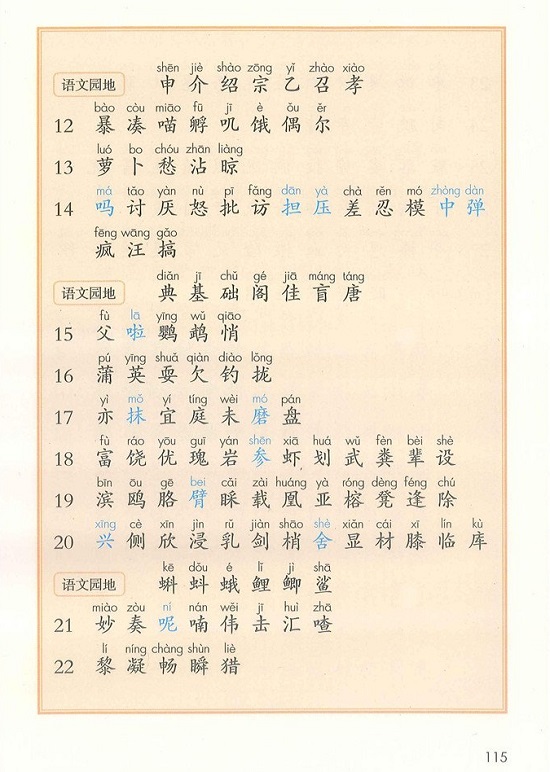 shēn jiè shào zōng yǐ zhào xiào
语文园地 申 介 绍 宗 乙 召 孝
bào còu miāo fū jī è ǒu ěr
12 暴 凑 喵 孵 叽 饿 偶 尔
luó bo chóu zhān liàng
13 萝 卜 愁 沾 晾
má tǎo yàn nù pī fǎng dān yà chà rěn mó zhòng dàn
14 吗 讨 厌 怒 批 访 担 压 差 忍 模 中 弹
fēng wāng gǎo
疯 汪 搞
diǎn jī chǔ gé jiā máng táng
语文园地 典 基 础 阁 佳 盲 唐
fù lā yīng wǔ qiāo
15 父 啦 鹦 鹉 悄
pú yīng shuǎ qiàn diào lǒng
16 蒲 英 耍 欠 钓 拢
yì mǒ yí tíng wèi mó pán
17 亦 抹 宜 庭 未 磨 盘
fù ráo yōu guī yán shēn xiā huá wǔ fèn bèi shè
18 富 饶 优 瑰 岩 参 虾 划 武 粪 辈 设
bīn ōu gē bei cǎi zài huáng yà róng dèng féng chú
19 滨 鸥 胳 臂 睬 载 凰 亚 榕 凳 逢 除
xīng cè xīn jìn rǔ jiàn shāo shě xiǎn cái xī lín kù
20 兴 侧 欣 浸 乳 剑 梢 舍 显 材 膝 临 库
kē dǒu é lǐ jì shā
语文园地 蝌 蚪 蛾 鲤 鲫 鲨
miào zòu ní nán wěi jī huì zhā
21 妙 奏 呢 喃 伟 击 汇 喳
lí níng chàng shùn liè
22 黎 凝 畅 瞬 猎
115